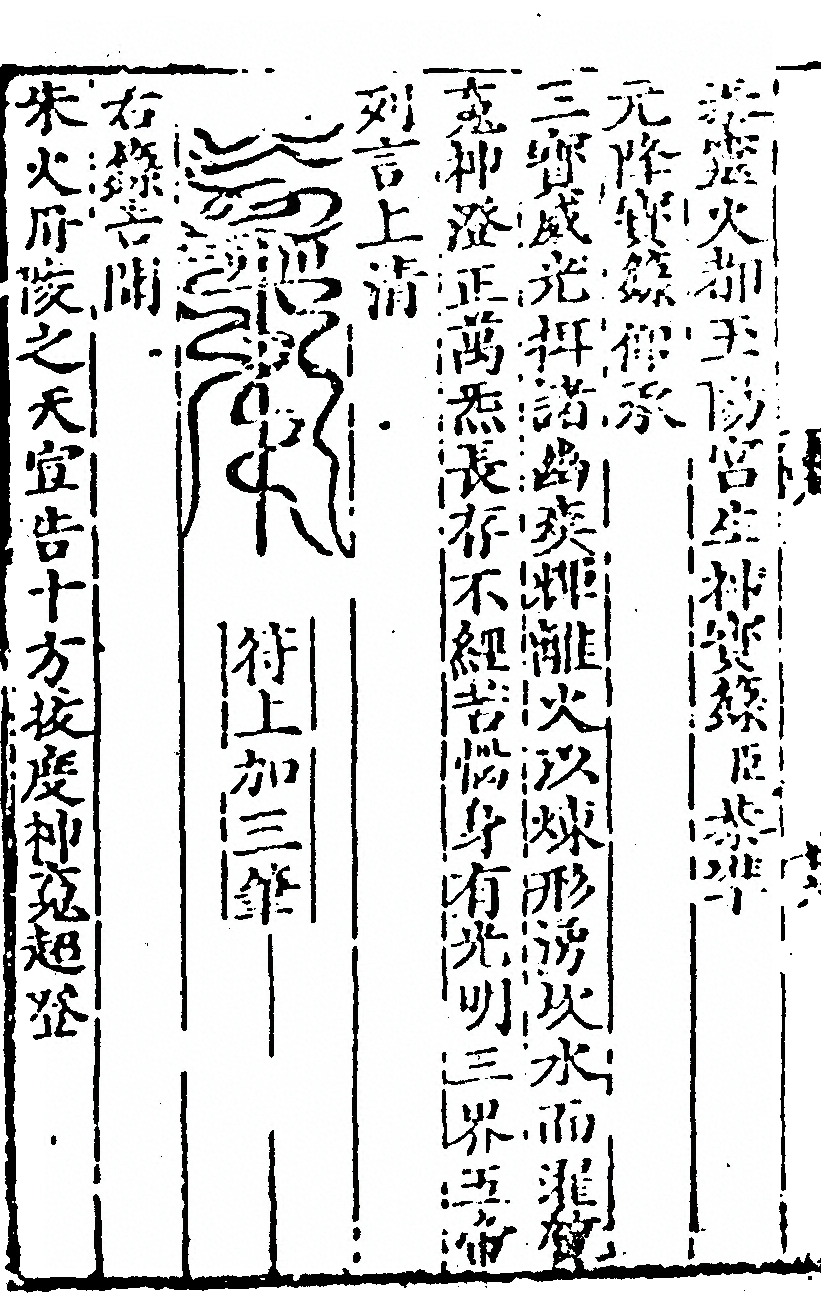 恭靈火都玉陽宮生神寳籙臣恭準
元降寳籙仰承
三寳威光拯諸幽爽輝離火以煉形湧坎水而灌質
䰟神澄正萬炁長存不經苦惱身有光明三界五帝
列言上清
符上加三筆
右籙告開
朱火府陵之天宣告十方拔度神䰟超登